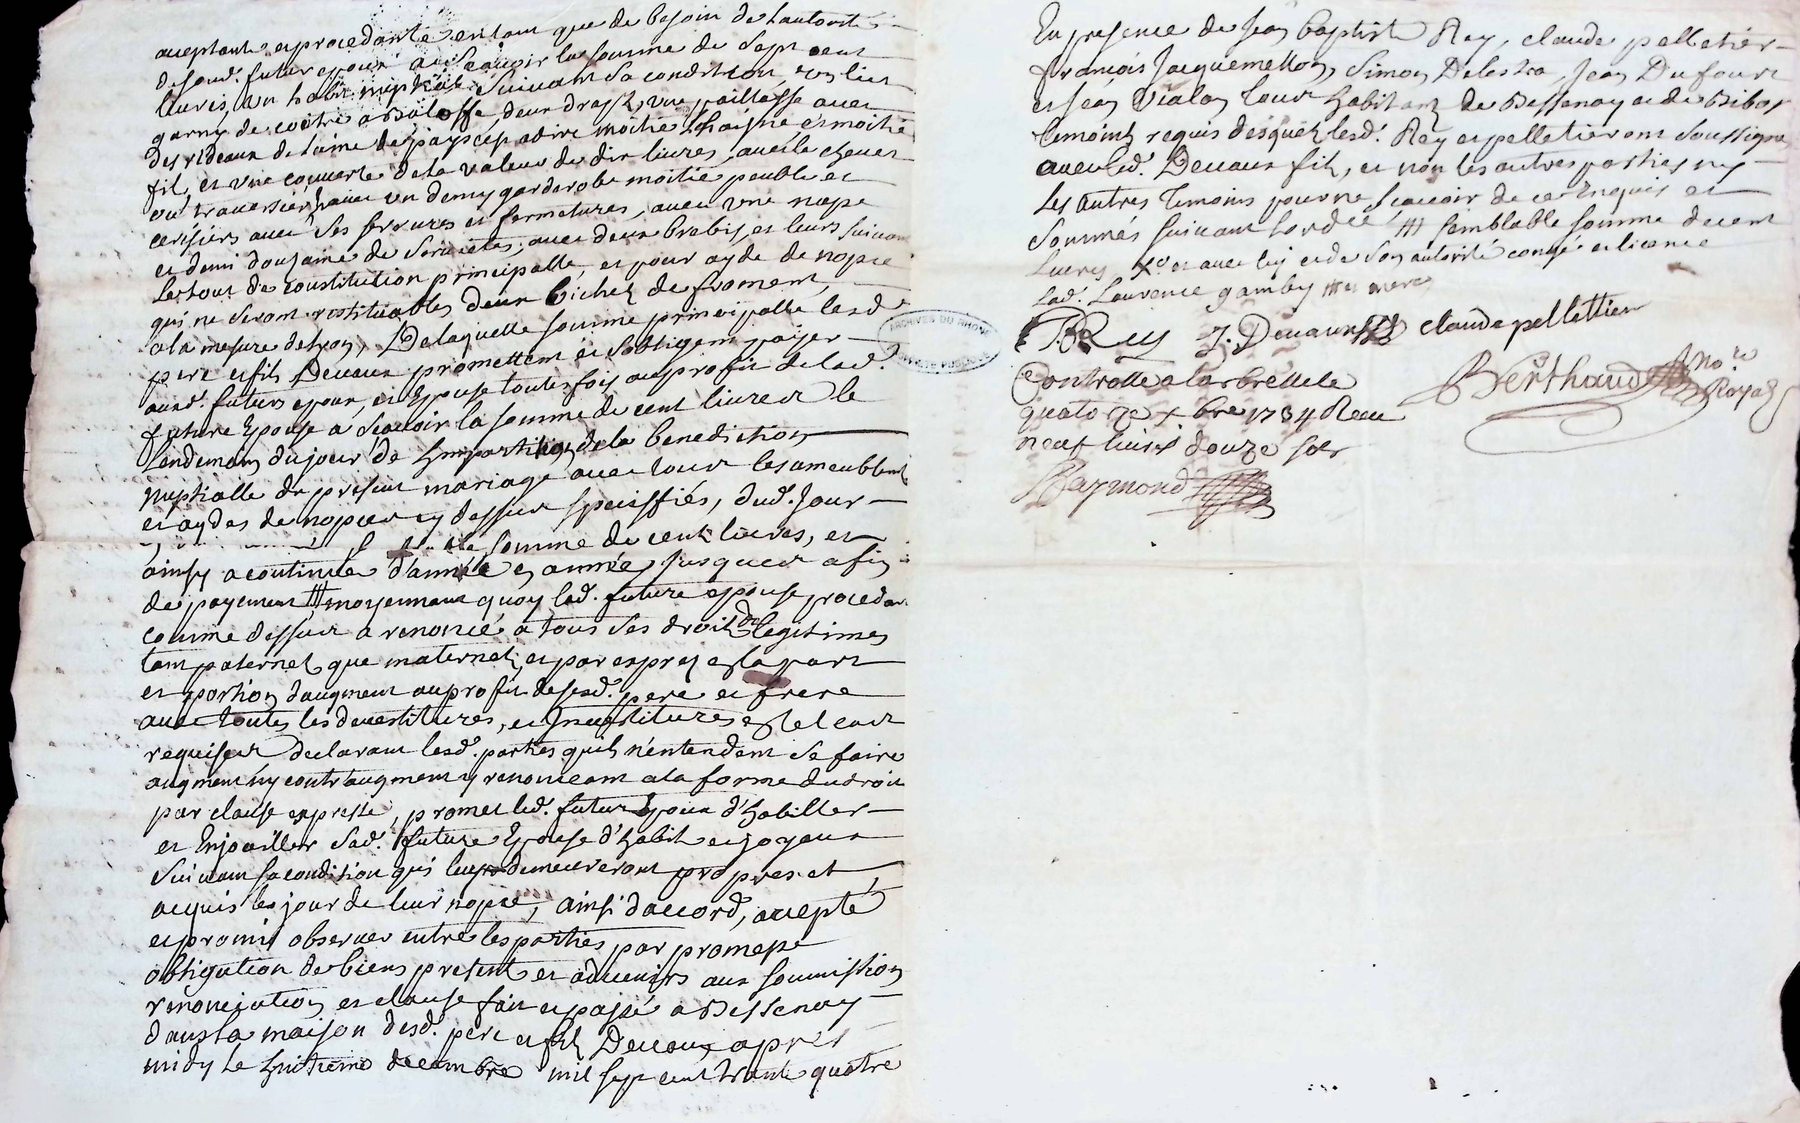 aceptante et procedante entant que de besoin de lautorité
desond. futur epoux a scavoir la somme de sept cent
livres, un habit nuptial suivant sa condition, un lict
garny de coitre a Baloffe, deux draps, une paillasse avec
des rideaux de laine de pays cept a dire moitié chaine et moitié
fil, et une couverte de la valeur de dix livres, avec le chevet
ou traversier, avec un demy garderobe moitié peuble et
cerisiers avec ses serrures et fermetures, avec une nape
et demi douzaine de serviettes, avec deux brebis, et leurs suivans
le tout de constitution principalle, et pour ayde de nopce
qui ne seront restituables deux bichet de froment,
a la mesure de lyon, De laquelle somme principalle lesd.
pere et fils Devaux promettent et sobligent payer
ausd. futurs epoux, et Epouse toutesfois au profit de lad.
future Epouse a scavoir la somme de cent livres le
lendemain du jour de limpartition de la benediction
nuptialle du present mariage avec tous les ameublemt
et aydes de nopces cy dessus speciffiés, dud. Jour
somme de cent livres, et
ainsy a continuer d'année en année jusques a fin
de payement # moyennant quoy lad. future epouse procedant
comme dessus a renoncé a tous ses droits de legitimes
tant paternel que maternel, et par exprez a sa part
et portion daugment au profit desesd. pere et frere
avec toutes les devestitures, et Investitures en tel cas
requises declarant lesd. parties quils n'entendent se faire
augment ny contraugment y renonceant a la forme du droit
par clause expresse, promet led. futur Epoux d'habiller
et Enjoailler sad. future Epouse d'habit et joyaux
suivant sa condition qui luy demeureront propres et
acquis les jour de leur nopce, ainsi daccord, accepté
et promis observer entre les parties par promesse
obligation de biens present et advenirs aux soumission
renonciation et clause fait et passé a Bessenay
dans la maison desd. pere et fils Devaux apres
midy le huitieme decembre mil sept cent trante quatre
En presence de Jean baptiste Rey, claude pelletier
francois Jacquemetton, Simon Delestra, Jean Dufour
et Jean Vialon tous habitant de Bessenay et de Bibost
temoins requis desquels lesd. Rey et pelletier ont soussigné
avec led. Devaux fils, et non les autres parties ny
les autres Temoins pour ne scavoir de ce Enquis et
sommés suivant lordce # semblable somme de cent
livres X et avec luy et de son autorité congé et licence
lad. Laurence gamby # sa mere
J. B. Rey J. Devaux claude pellettier
Berthaud Nore Royal
Controllé a larbrelle le
quatorze xbre 1734 Reçu
neuf livres douze sols
Raymond
ARCHIVES DU RHONE